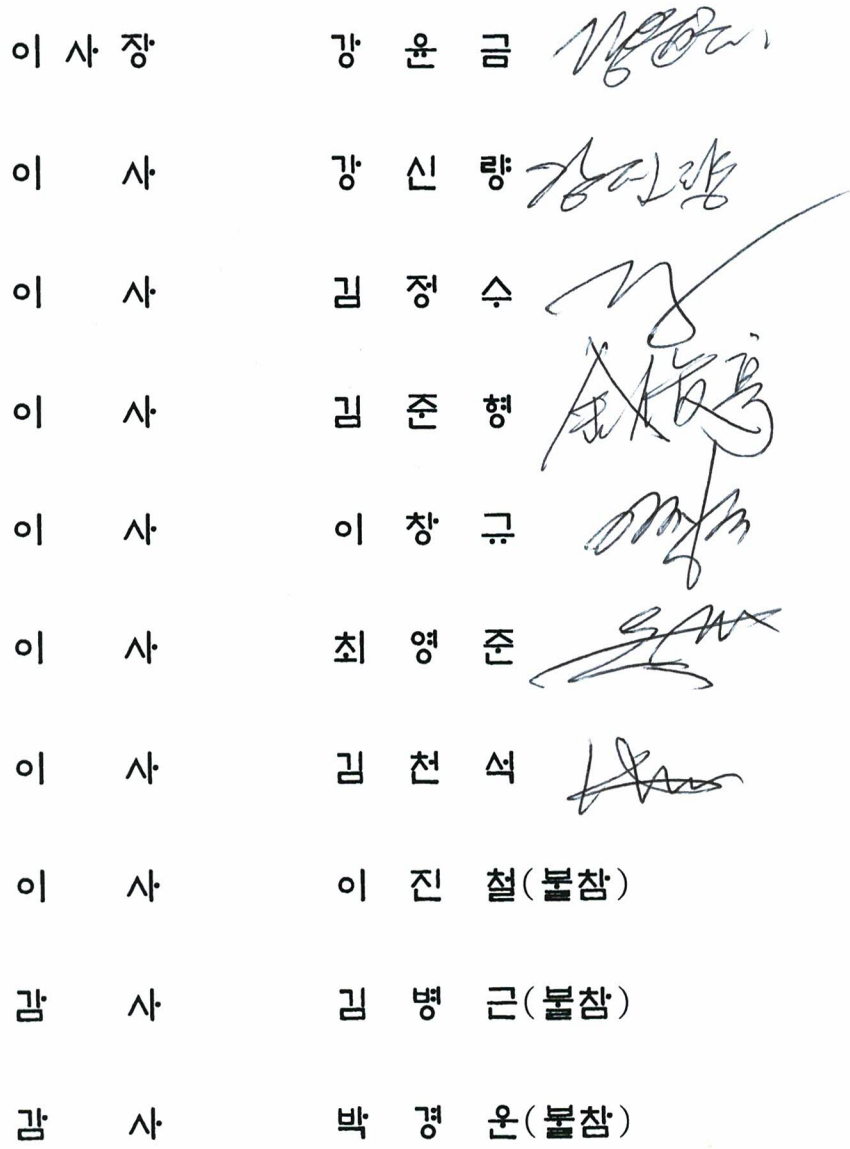 이 사 장 강 윤 금
이 사 강 신 량 강신량
이 사 김 정 수
이 사 김 준 형
이 사 이 창 규
이 사 최 영 준
이 사 김 천 석
이 사 이 진 철(불참)
감 사 김 병 근(불참)
감 사 박 경 운(불참)